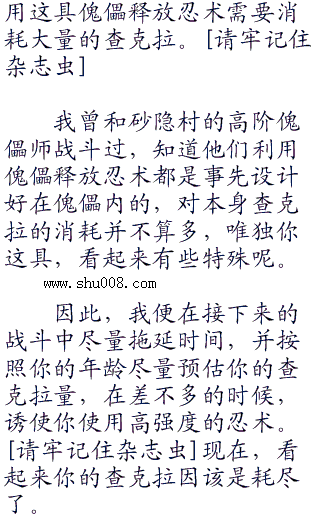 用这具傀儡释放忍术需要消
耗大量的查克拉。[请牢记住
杂志虫]
我曾和砂隐村的高阶傀
儡师战斗过，知道他们利用
傀儡释放忍术都是事先设计
好在傀儡内的，对本身查克
拉的消耗并不算多，唯独你
这具，看起来有些特殊呢。
www.shu008.com
因此，我便在接下来的
战斗中尽量拖延时间，并按
照你的年龄尽量预估你的查
克拉量，在差不多的时候，
诱使你使用高强度的忍术。
[请牢记住杂志虫]现在，看
起来你的查克拉因该是耗尽
了。